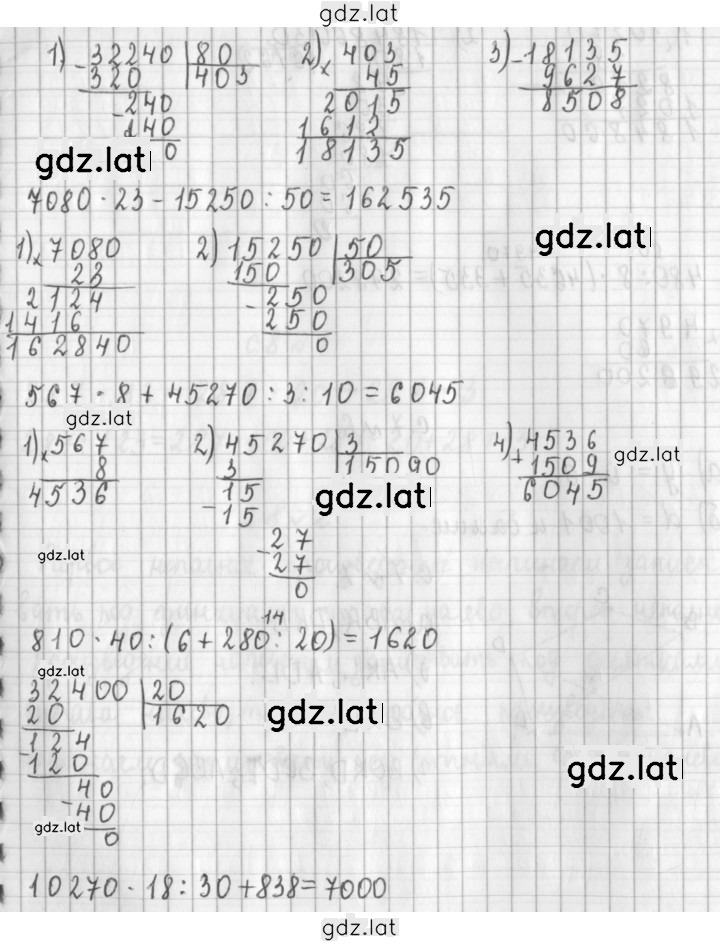 gdz.lat
1) 32240 | 80
- 320 | 403
- 240
140
0
2) 403
× 45
2015
1612
18135
3) - 18135
9627
8508
gdz.lat
7080 · 23 - 15250 : 50 = 162535
gdz.lat
1) 7080
× 23
2124
1416
162840
2) 15250 | 50
150 | 305
- 250
250
0
567 · 8 + 45270 : 3 : 10 = 6045
gdz.lat
1) 567
× 8
4536
2) 45270 | 3
3 | 15090
15
- 15
- 27
27
0
4) 4536
+ 1509
6045
gdz.lat
gdz.lat
gdz.lat
14
810 · 40 : (6 + 280 : 20) = 1620
gdz.lat
32400 | 20
20 | 1620
124
- 120
40
- 40
0
gdz.lat
gdz.lat
gdz.lat
10270 · 18 : 30 + 838 = 7000
gdz.lat